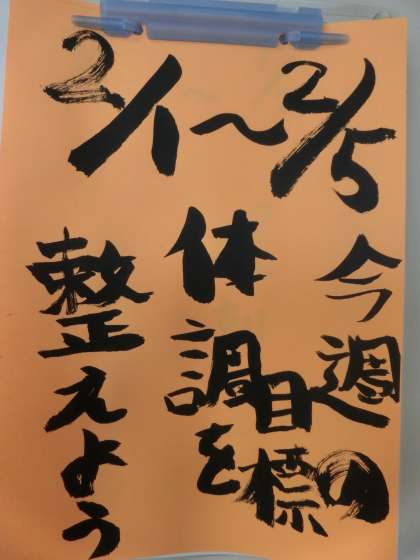 2/1〜2/5
今週の
目標
体調を
整えよう